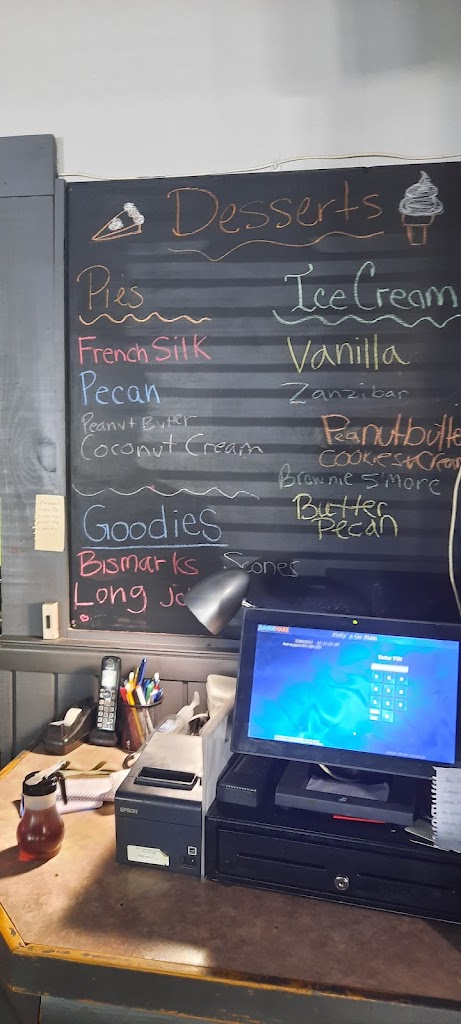 Desserts
Pies
French Silk
Pecan
Peanut Butter
Coconut Cream
Ice Cream
Vanilla
Zanzibar
Peanutbutte
Cookies & Cream
Brownie S'More
Butter
Pecan
Goodies
Bismarks
Scones
Long Jo
Enter PIN
EPSON